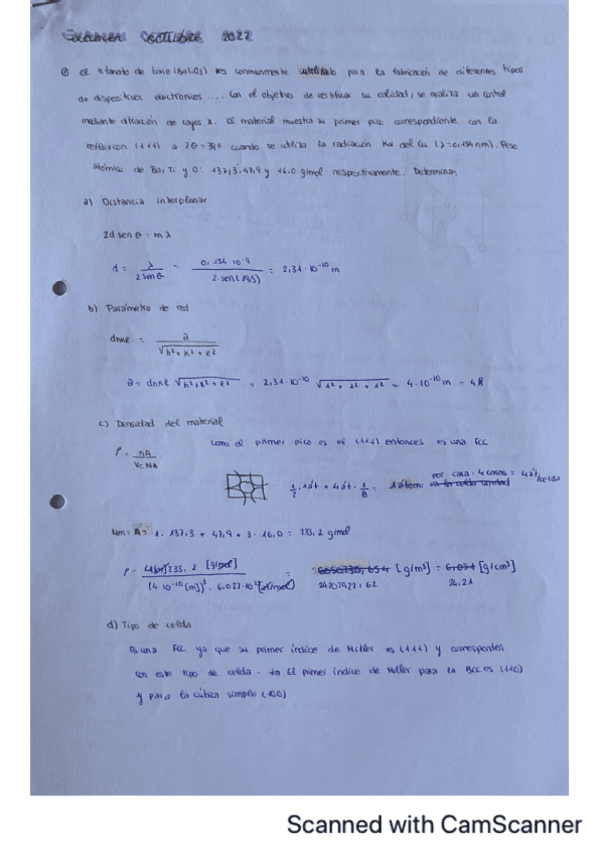 EXAMEN OCTUBRE 2022
① El titanato de bario (BaTiO3) es comunmente utilizado para la fabricación de diferentes tipos
de dispositivos electronicos ... Con el objetivo de certificar su calidad, se realiza un control
mediante difracción de rayos X. El material muestra su primer pico correspondiente con la
(111) a 2θ = 39° cuando se utiliza la radiación Kα del Cu (λ=0,154nm). Peso
atómico de Ba, Ti y O: 137,3, 47,9 y 16.0 g/mol respectivamente. Determina:
a) Distancia interplanar
2d sen θ = m λ
d = λ / 2 sen θ = 0,154·10⁻⁹ / 2·sen(19,5) = 2,31·10⁻¹⁰ m
b) Parámetro de red
dhkl = a / √h²+k²+l²
a = dhkl √h²+k²+l² = 2,31·10⁻¹⁰ √1²+1²+1² = 4·10⁻¹⁰ m = 4Å
c) Densidad del material
como el primer pico es el (111) entonces es una FCC
ρ = nA / Vc NA
1/2·1át + 4át·1/8 = 1átomo por cara · 4 = 4át/celda
A = 1·137,3 + 47,9 + 3·16,0 = 233,2 g/mol
ρ = 233,2 [g/mol] / (4·10⁻¹⁰ [m])³ · 6.022·10 = [g/m³] = [g/cm³]
24207922,62 24,21
d) Tipo de celda
Es una FCC ya que su primer índice de Miller es (111) y corresponden
con este tipo de celda. El primer índice de Miller para la BCC es (110)
y para la cúbica simple (100)
Scanned with CamScanner